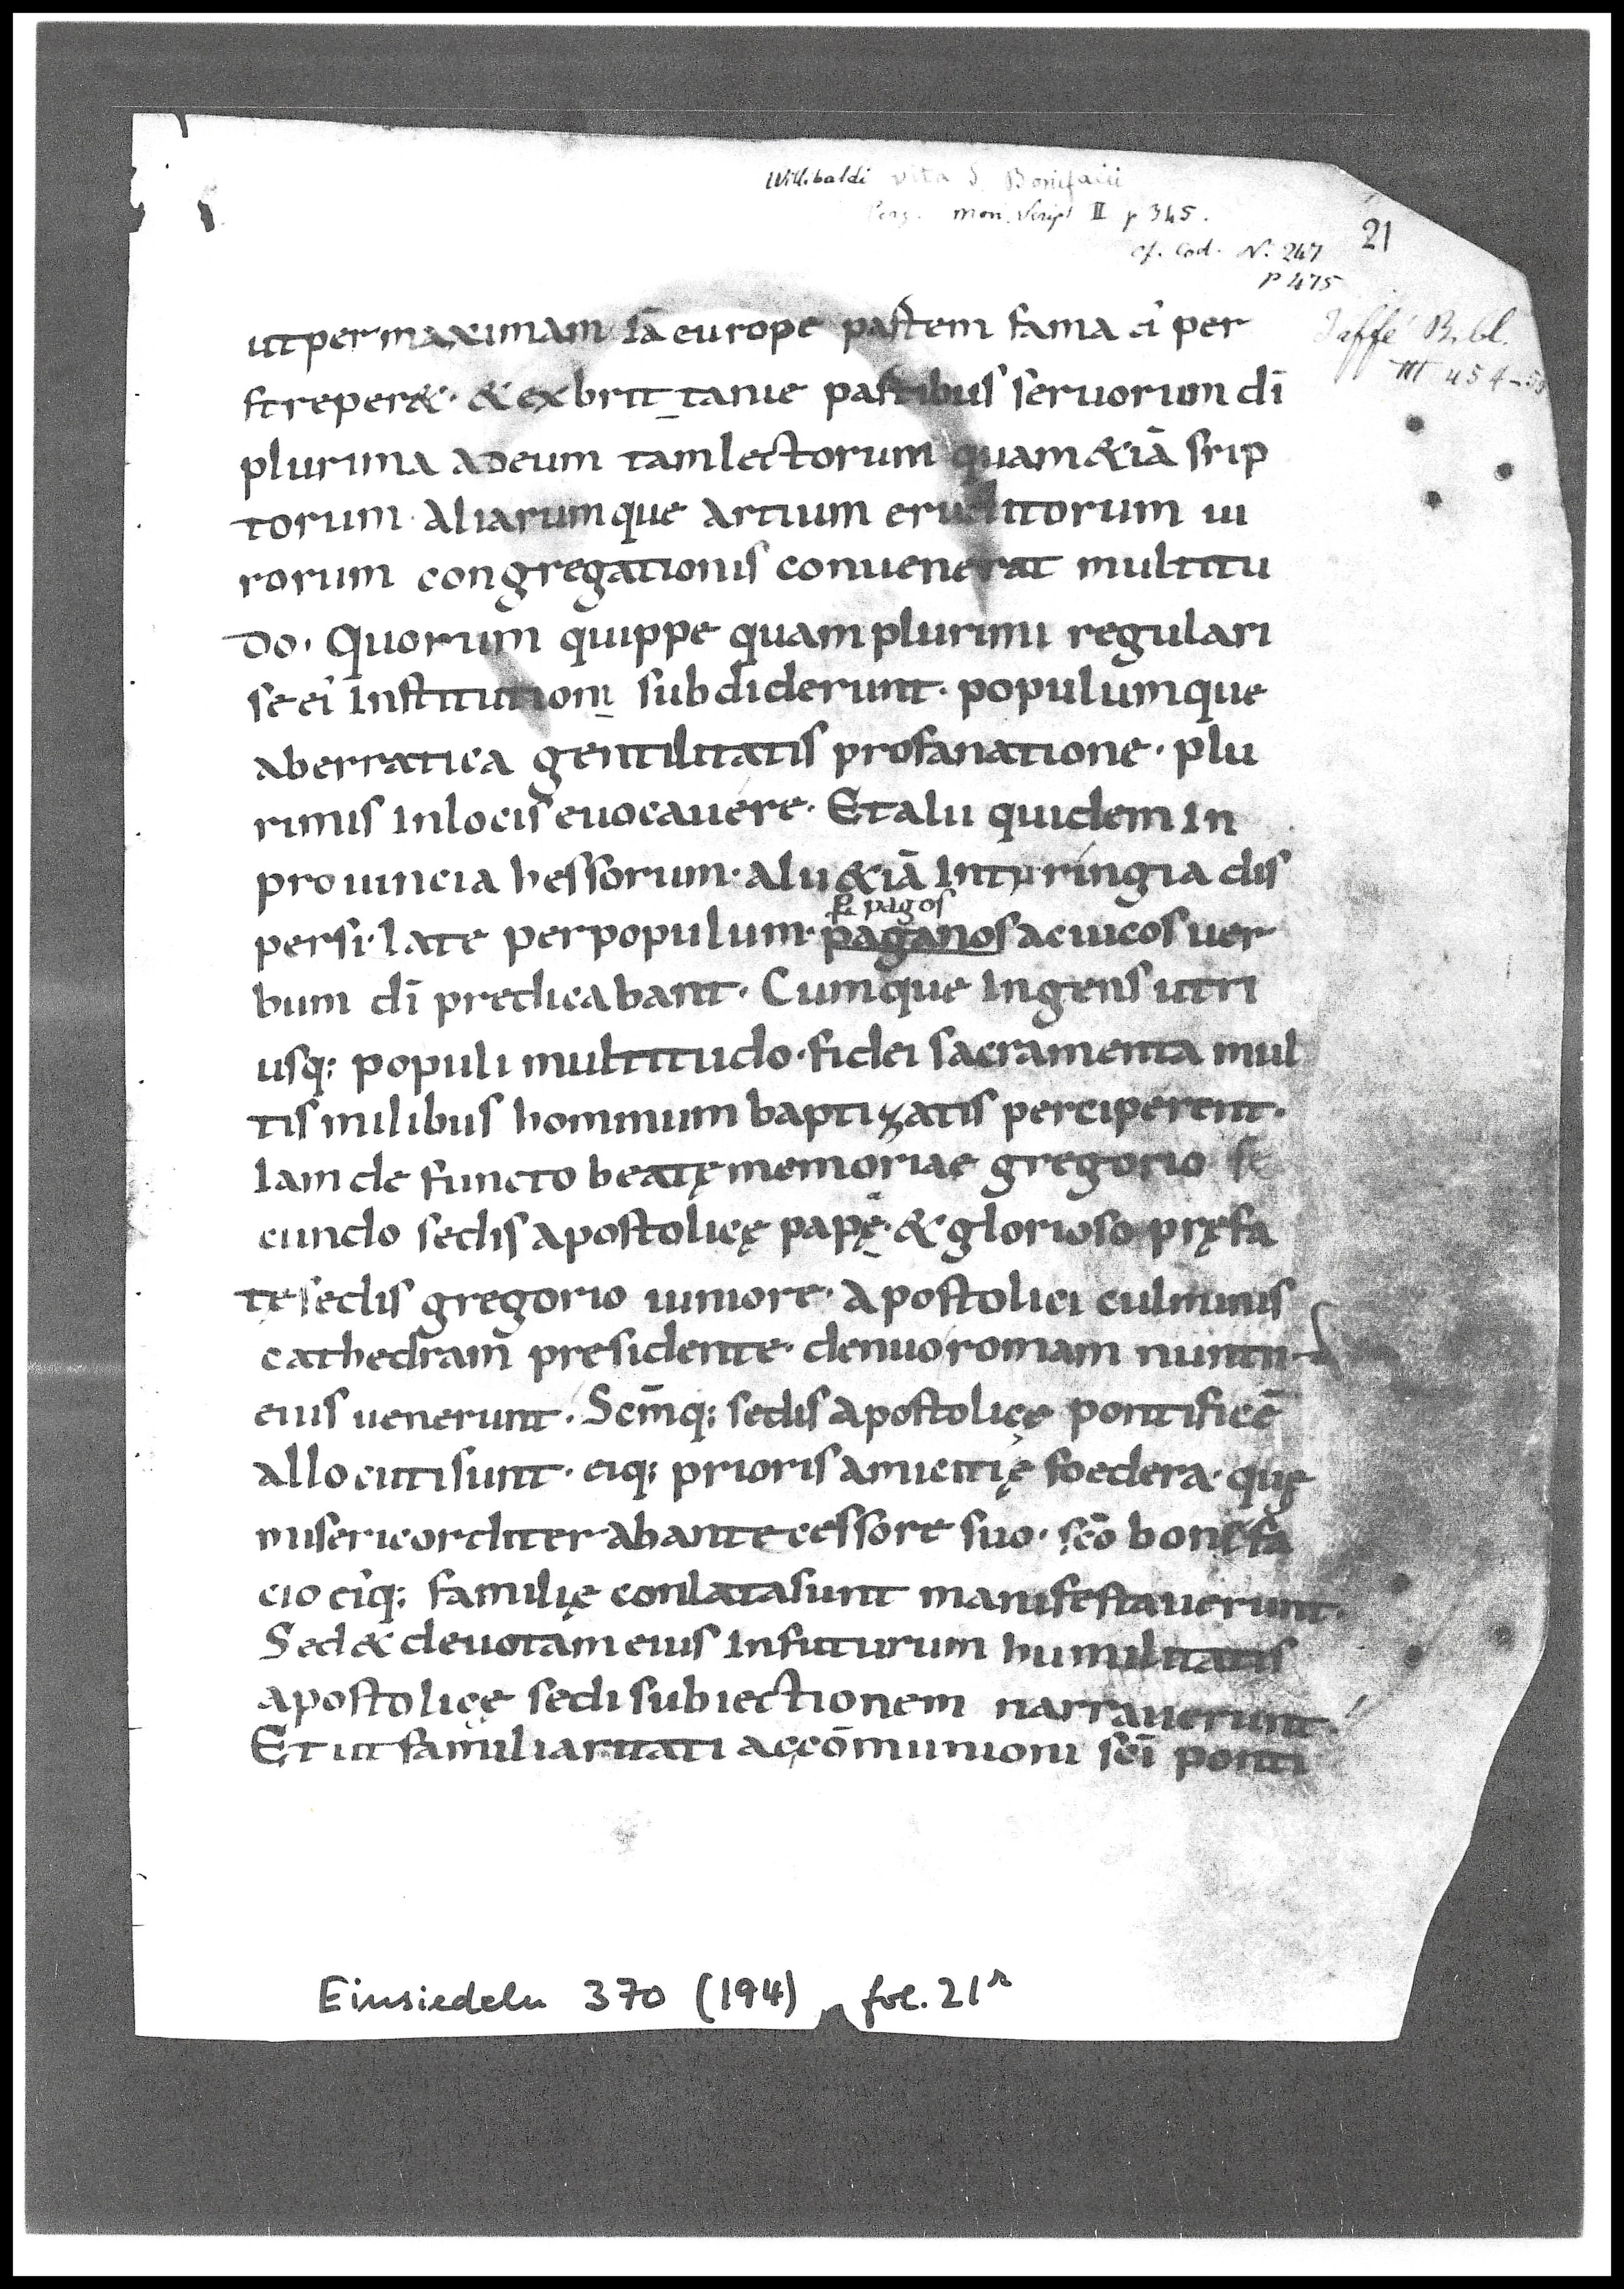 Willibaldi vita S. Bonifacii
Perz. Mon. Script II p 345.
21
cf. Cod. N. 247
p 475
Jaffé Bibl.
III 454-
ut per maximam iā europe partem fama ei' per
streper&· & ex brit tanie partibus seruorum dī
plurima ad eum tam lectorum quam &iā scrip
torum· aliarumque artium eruditorum ui
rorum congregationis conuenerat multitu
do· Quorum quippe quam plurimi regulari
se ei' institutioni subdiderunt· populumque
ab erratica gentilitatis profanatione· plu
rimis in locis euocauere· Et alii quidem in
prouincia hessorum· alii &iā in tyringia dis
pagos
persi· late per populum· paganos ac uicos uer
bum dī predicabant· Cumque ingens utri
usq: populi multitudo· fidei sacramenta mul
tis milibus hominum baptizatis perciperent·
Iam defuncto beatę memoriae gregorio se
cundo sedis apostolicę papę· & glorioso pręfa
tę sedis gregorio iuniore· apostolici culminis
cathedram presidente· denuo romam nuntii
eius uenerunt· Scm̄q: sedis apostolicę pontificē
allocuti sunt· eiq: prioris amicitię foedera· quę
misericorditer ab antecessore suo· scō bonifa
cio ei'q: familię conlata sunt manifestauerunt·
Sed & deuotam eius in futurum humilitatis
apostolicę sedi subiectionem narrauerunt·
Et ut familiaritati ac cōmunioni scī ponti
Einsiedeln 370 (194) fol. 21r